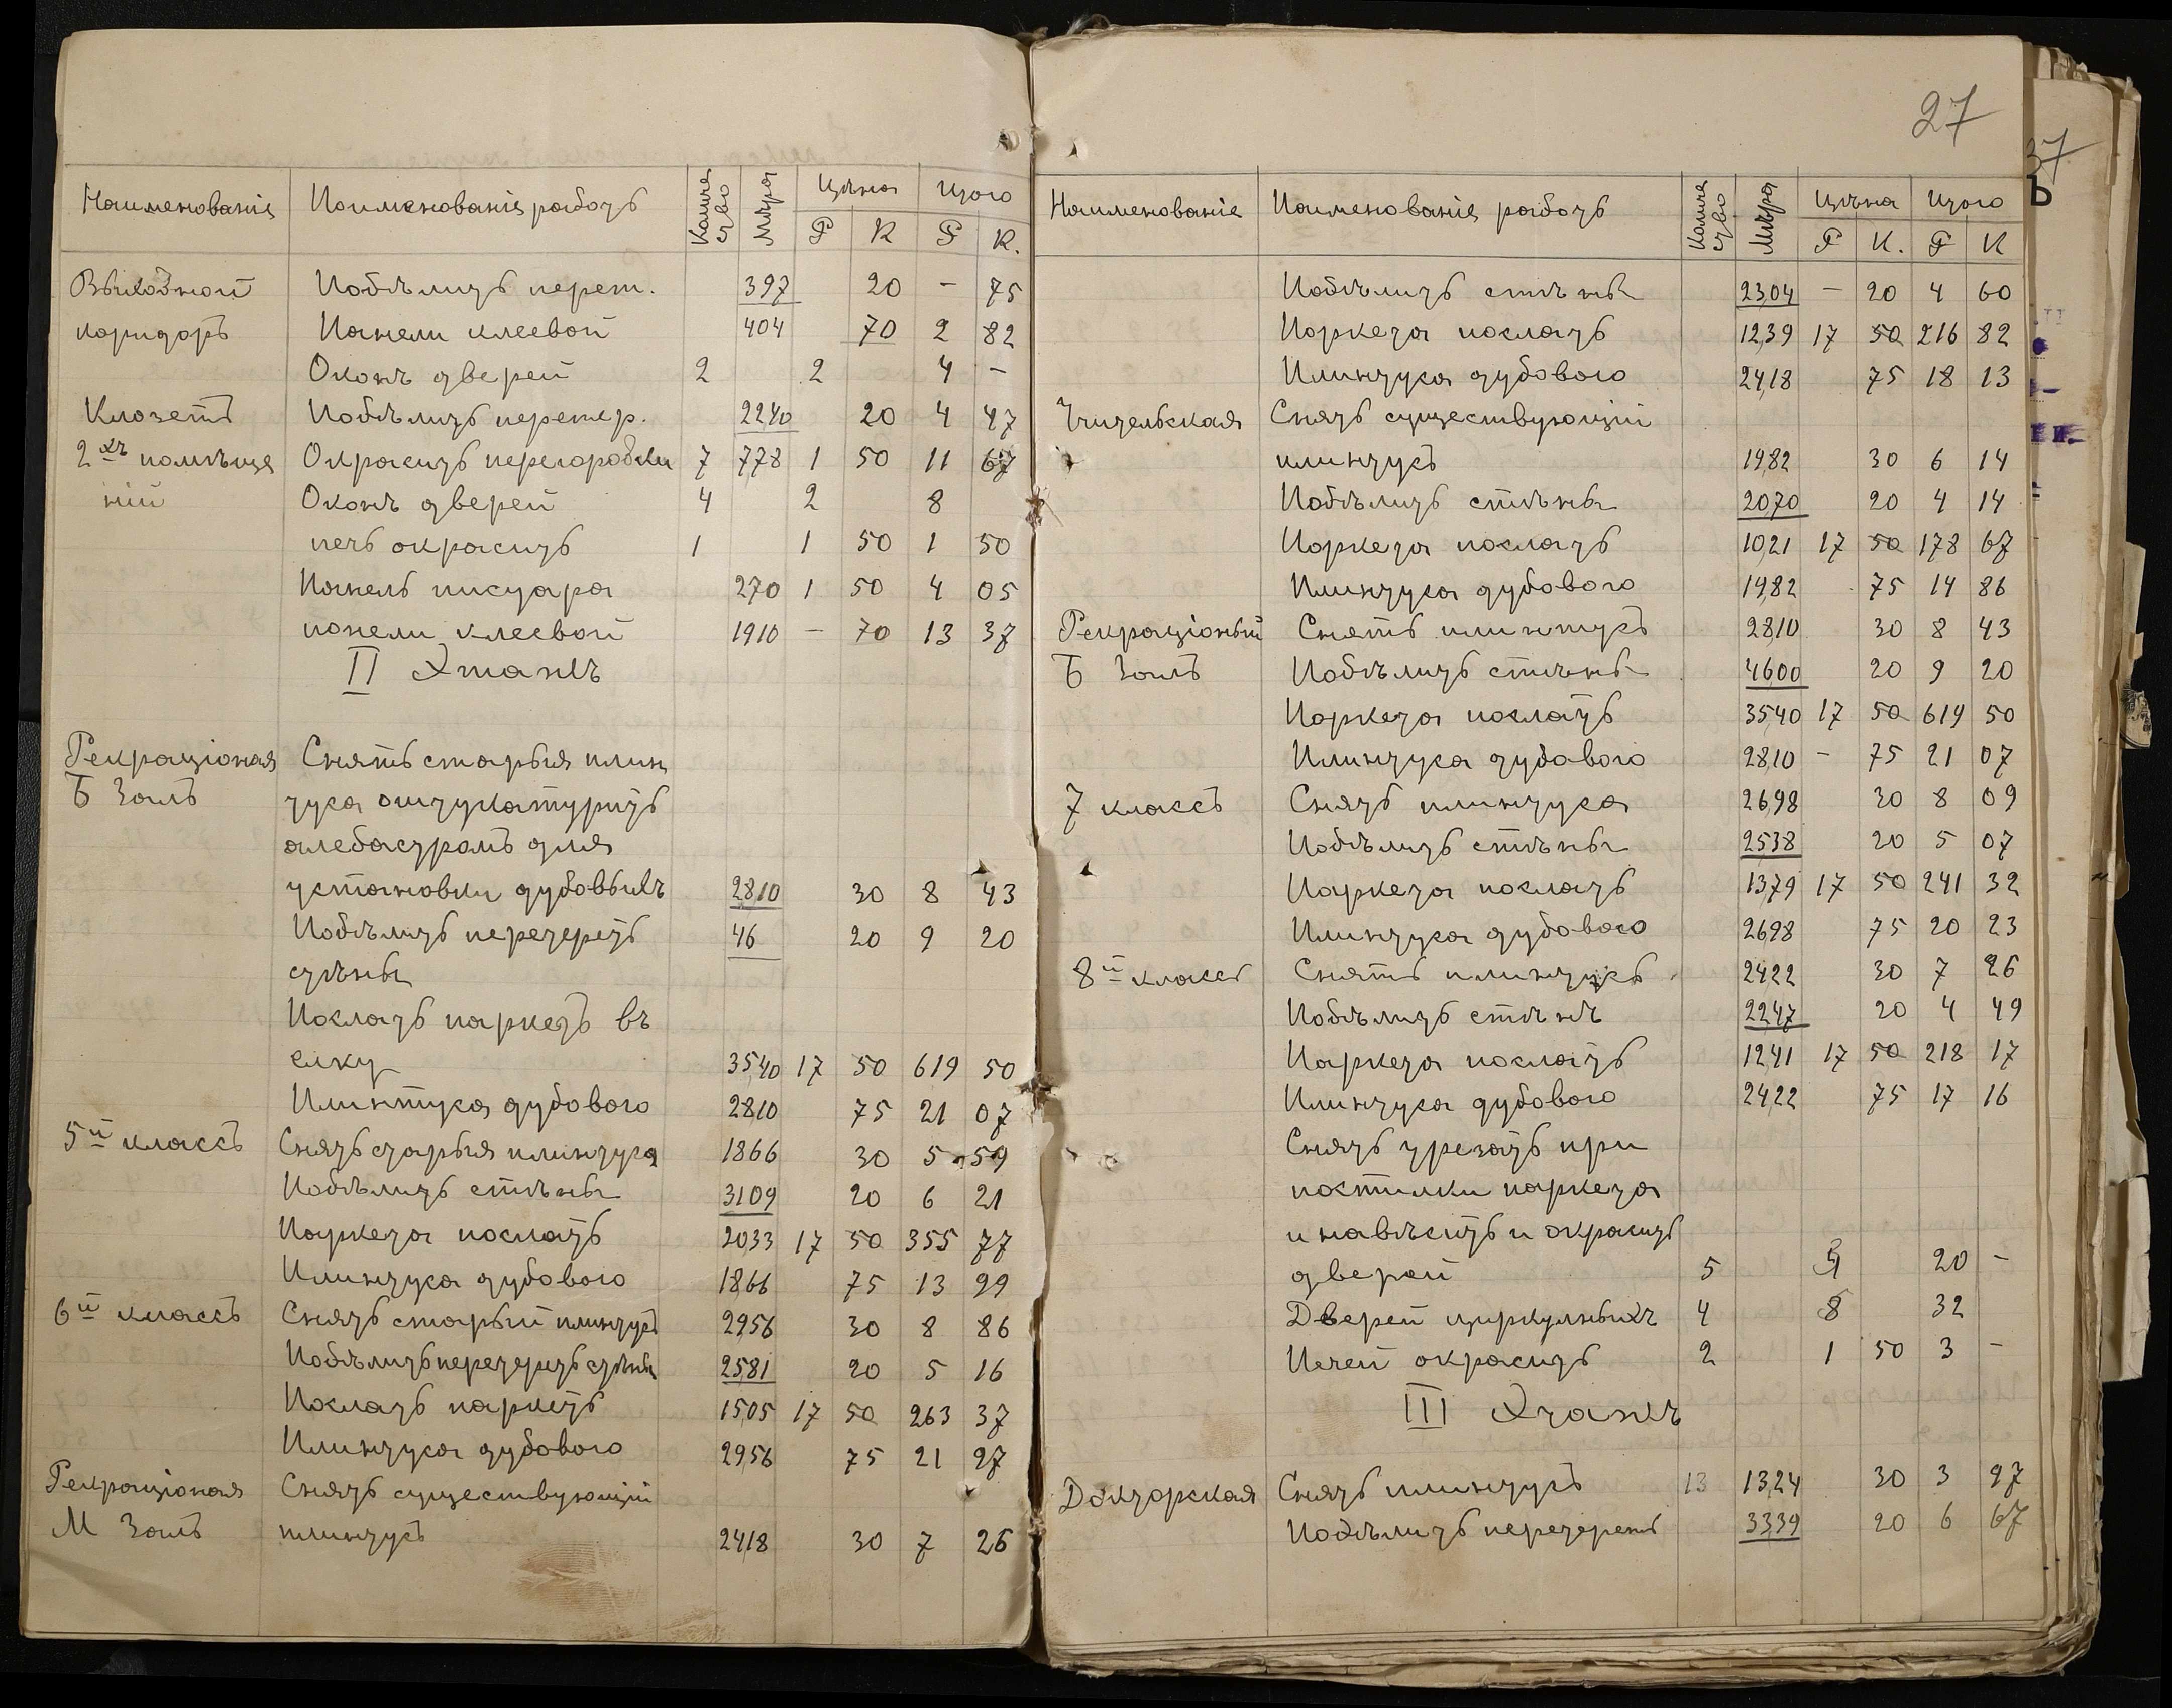 Наименованіе Наименованіе работъ Количество Мѣра Цѣна Итого
Р К Р К.
Выходной Побѣлить перет. 397 20 – 75
коридоръ Панели клеевой 404 70 2 82
Оконъ дверей 2 2 4 –
Клозетъ Побѣлить перетер. 2240 20 4 47
2хъ помѣще Окрасить перегородки 7 778 1 50 11 67
ній Оконъ дверей 4 2 8
печь окрасить 1 1 50 1 50
Панель писуара 270 1 50 4 05
панели клеевой 1910 – 70 13 37
II Этажъ
Рекраціоная Снять старыя плин
Б Залъ туса оштукатурить
алебастромъ для
установки дубовыхъ 2810 30 8 43
Побѣлить перетереть 46 20 9 20
стѣны
Послать паркетъ въ
елку 3540 17 50 619 50
Плинтуса дубового 2810 75 21 07
5й классъ Снять старыя плинтуса 1866 30 5 59
Побѣлить стѣны 3109 20 6 21
Паркета послать 2033 17 50 355 77
Плинтуса дубового 1866 75 13 99
6й классъ Снять старый плинтусъ 2956 30 8 86
Побѣлить перетерить стѣны 2581 20 5 16
Послать паркетъ 1505 17 50 263 37
Плинтуса дубового 2956 75 21 97
Рекраціоная Снять существующій
М Залъ плинтусъ 2418 30 7 26
27
Наименованіе Наименованіе работъ Количество Мѣра Цѣна Итого
Р К. Р К
Побѣлить стѣны 2304 – 20 4 60
Паркета послать 1239 17 50 216 82
Плинтуса дубового 2418 75 18 13
Учительская Снять существующій
плинтусъ 1982 30 6 14
Побѣлить стѣны 2070 20 4 14
Паркета послать 1021 17 50 178 67
Плинтуса дубового 1982 75 14 86
Рекраціоный Снять плинтусъ 2810 30 8 43
Б Залъ Побѣлить стѣны 4600 20 9 20
Паркета послать 3540 17 50 619 50
Плинтуса дубового 2810 – 75 21 07
7 классъ Снять плинтуса 2698 30 8 09
Побѣлить стѣны 2538 20 5 07
Паркета послать 1379 17 50 241 32
Плинтуса дубового 2698 75 20 23
8й классъ Снять плинтусъ 2422 30 7 26
Побѣлить стѣнъ 2247 20 4 49
Паркета послать 1241 17 50 218 17
Плинтуса дубового 2422 75 17 16
Снять урезать при
постилки паркета
и навѣсить и окрасить
дверей 5 4 20 –
Дверей циркулныхъ 4 8 32
Печей окрасить 2 1 50 3 –
III Этажъ
Докторская Снять плинтусъ 13 1324 30 3 97
Побѣлить перетереть 3339 20 6 67
37
Ъ